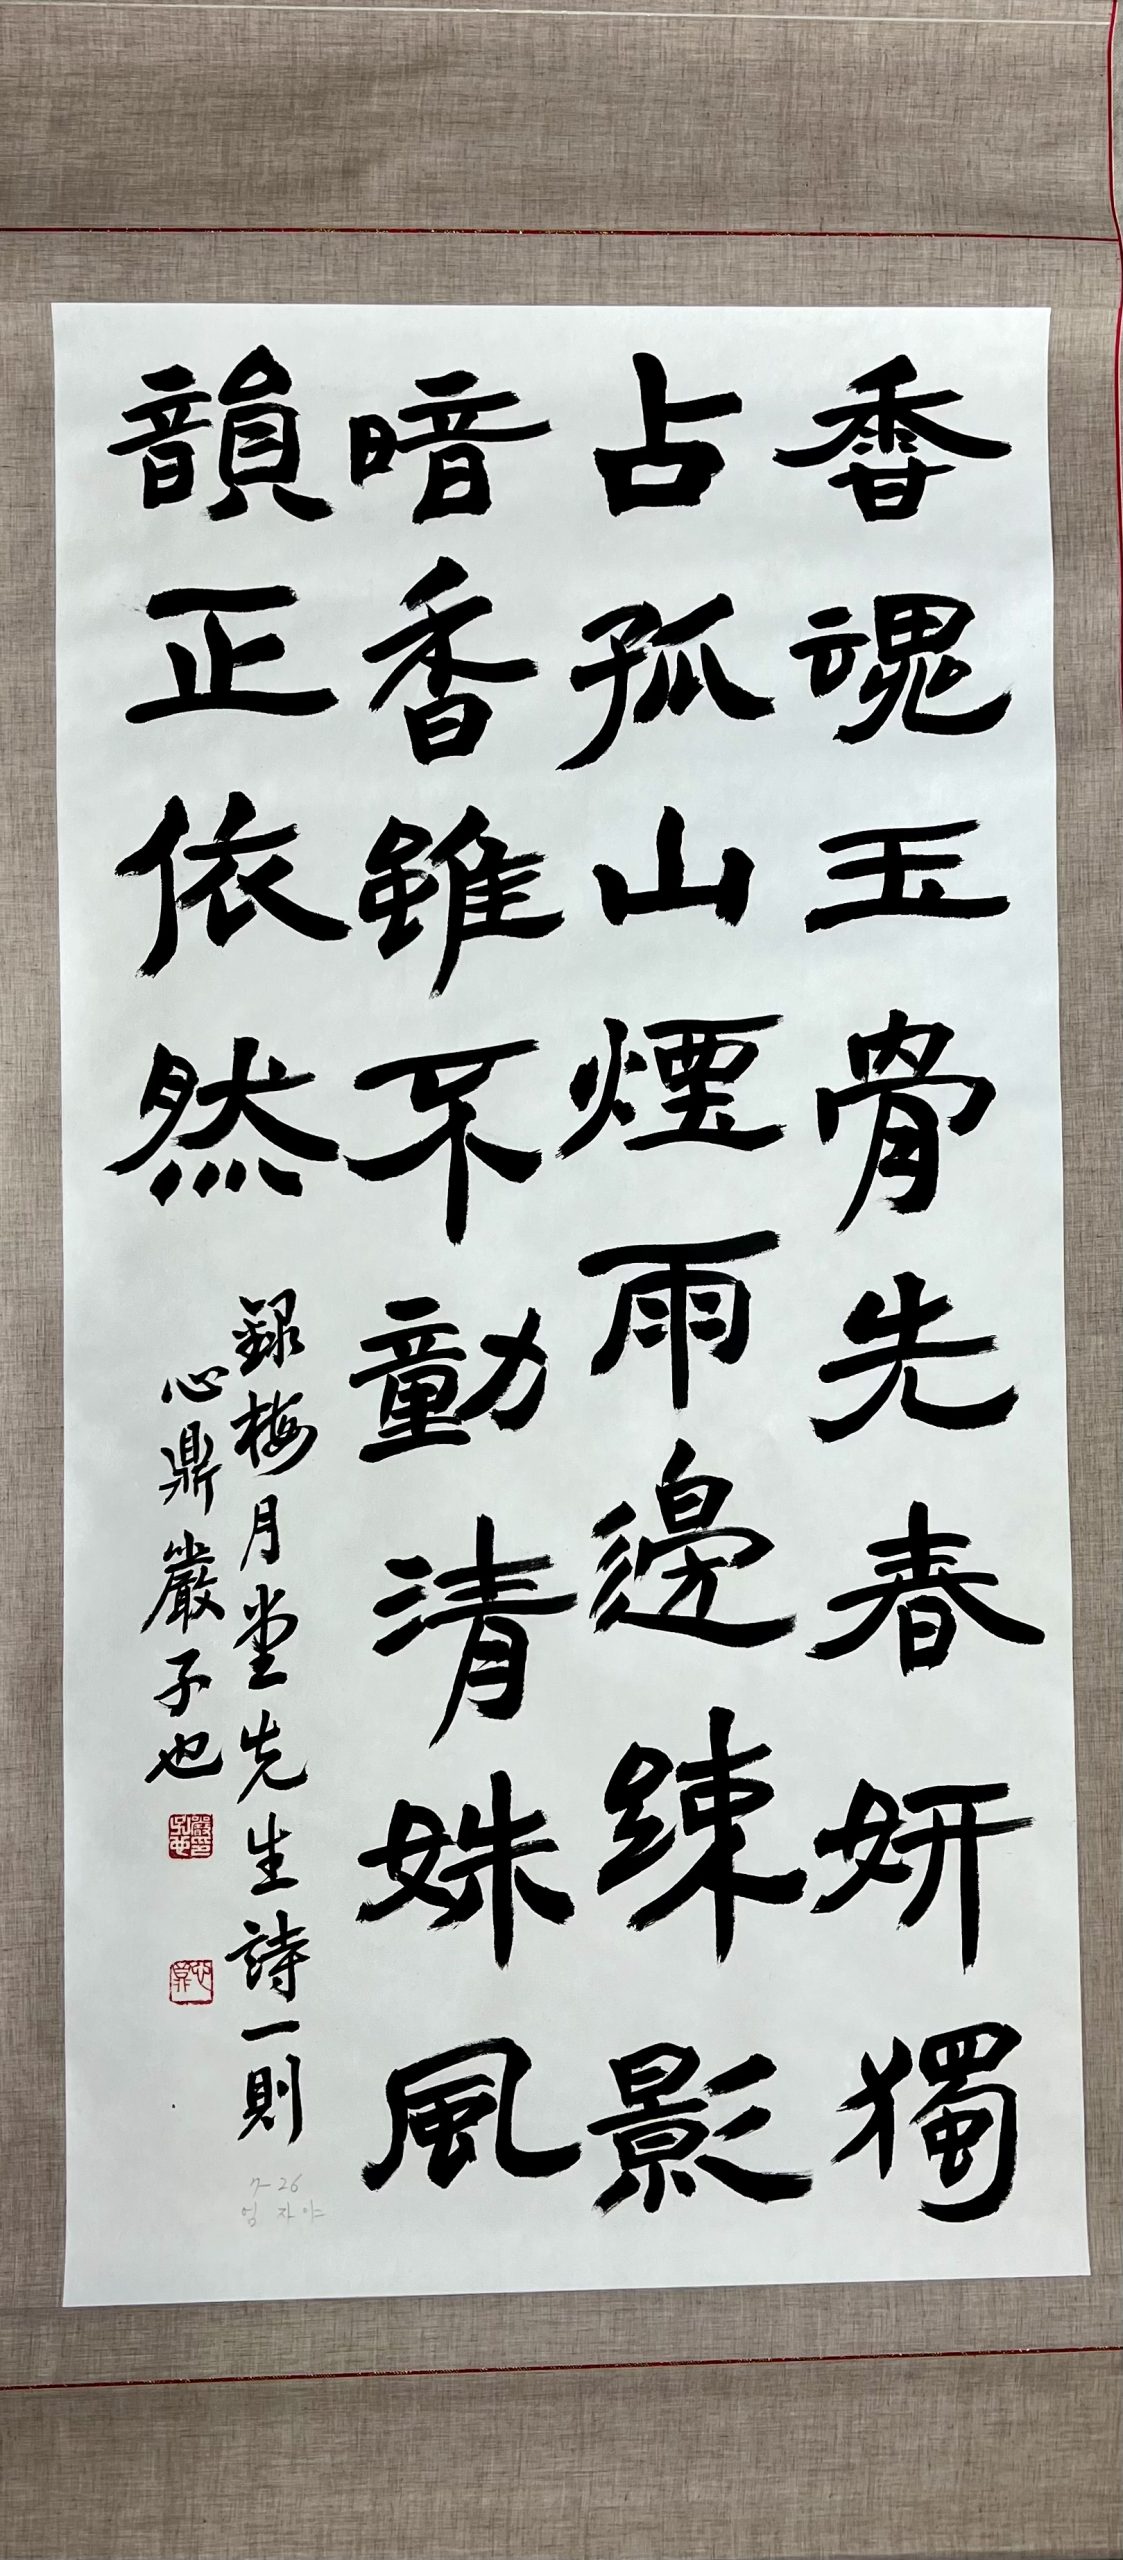 香魂玉骨先春妍獨
占孤山煙雨邊踈影
暗香雖不動清姝風
韻正依然
録梅月堂先生詩一則
心鼎嚴子也
嚴印子也
心鼎
7-26
엄자야